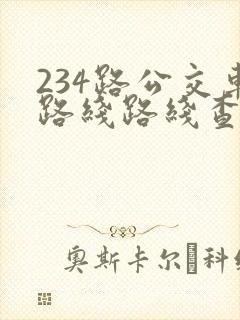 234路公交車
路綫路綫查
奥斯卡尔·科